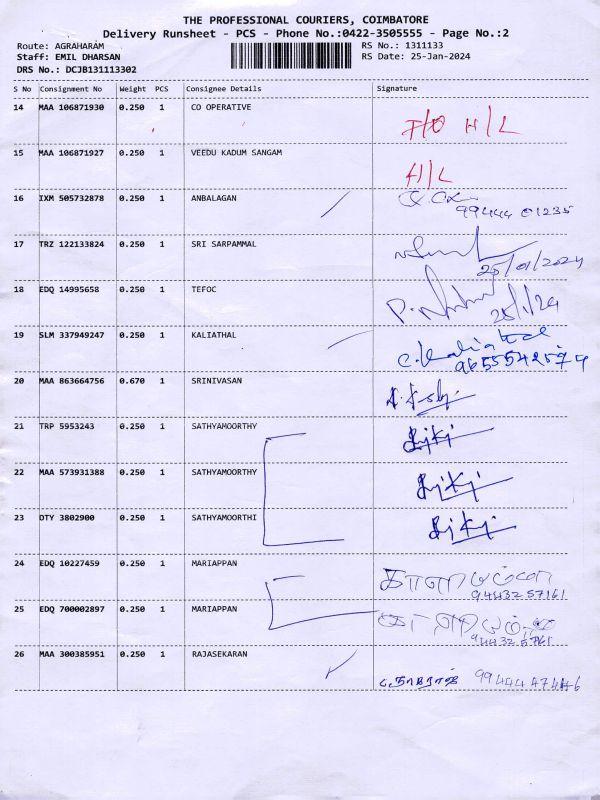 THE PROFESSIONAL COURIERS, COIMBATORE
Delivery Runsheet - PCS - Phone No.:0422-3505555 - Page No.:2
Route: AGRAHARAM RS No.: 1311133
Staff: EMIL DHARSAN RS Date: 25-Jan-2024
DRS No.: DCJB131113302
S No Consignment No Weight PCS Consignee Details Signature
14 MAA 106871930 0.250 1 CO OPERATIVE F/O H/L
15 MAA 106871927 0.250 1 VEEDU KADUM SANGAM H/L
16 IXM 505732878 0.250 1 ANBALAGAN 99444 01235
17 TRZ 122133824 0.250 1 SRI SARPAMMAL 25/01/2024
18 EDQ 14995658 0.250 1 TEFOC 25/1/24
19 SLM 337949247 0.250 1 KALIATHAL 9655542574
20 MAA 863664756 0.670 1 SRINIVASAN
21 TRP 5953243 0.250 1 SATHYAMOORTHY
22 MAA 573931388 0.250 1 SATHYAMOORTHY
23 DTY 3802900 0.250 1 SATHYAMOORTHI
24 EDQ 10227459 0.250 1 MARIAPPAN 9443257161
25 EDQ 700002897 0.250 1 MARIAPPAN
26 MAA 300385951 0.250 1 RAJASEKARAN